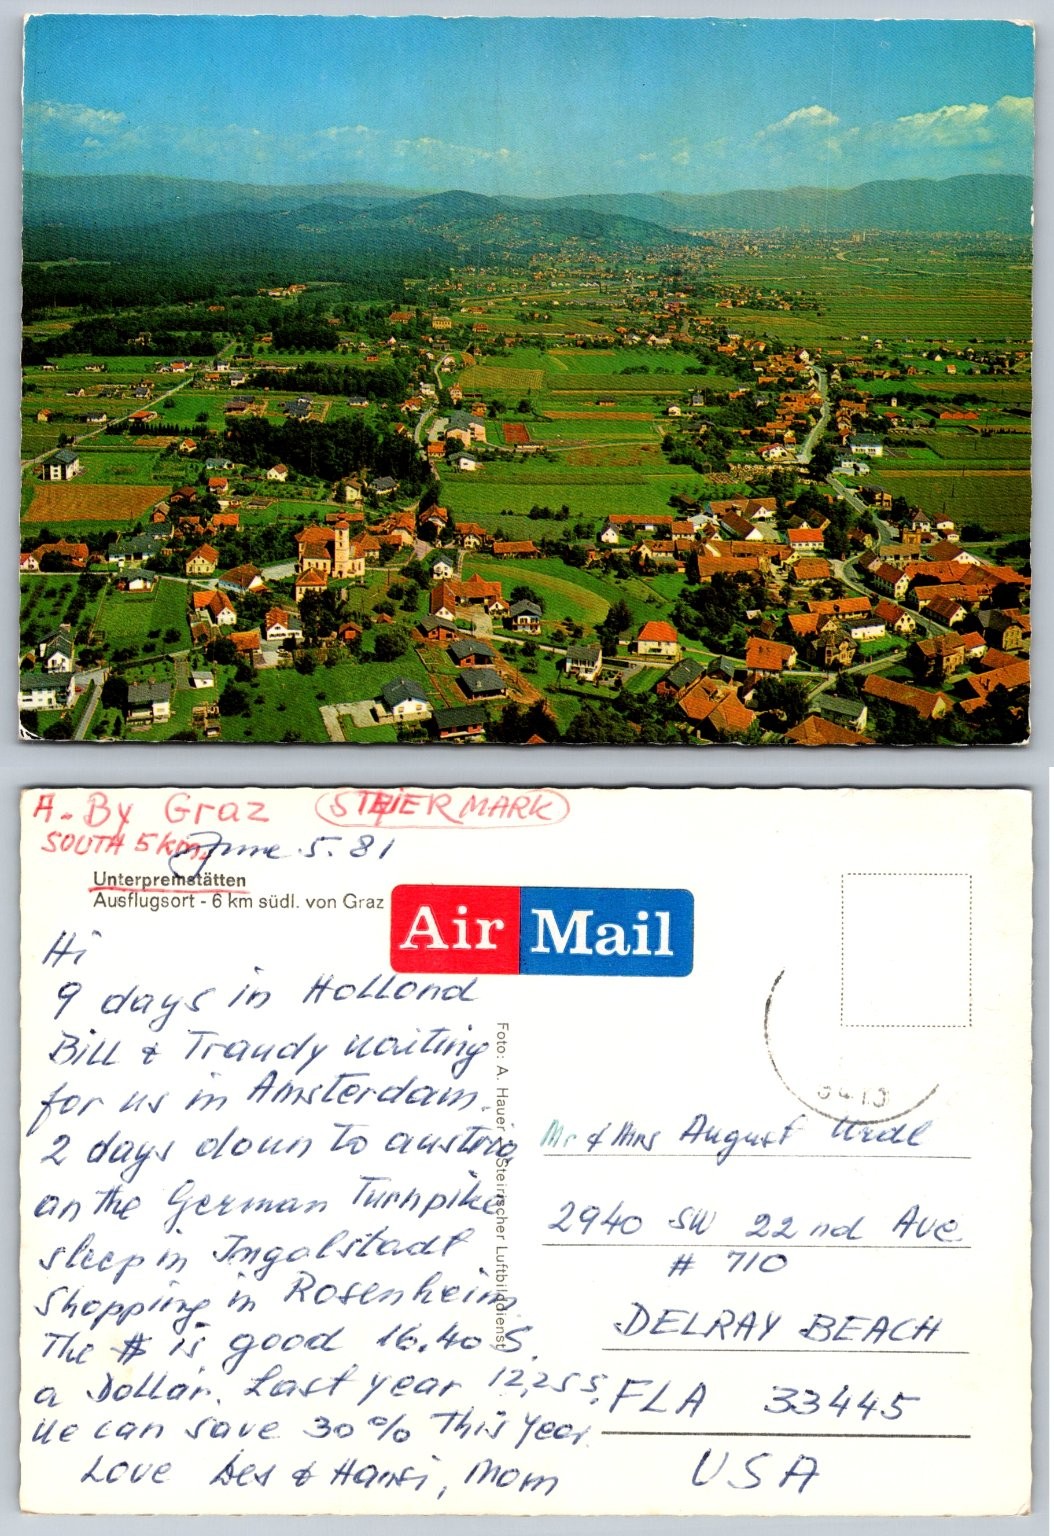 A. By Graz STEIERMARK
SOUTH 5 km.
June 5. 81
Unterpremstätten
Ausflugsort - 6 km südl. von Graz
Air Mail
Hi
9 days in Hollond
Bill & Traudy waiting
for us in Amsterdam.
2 days down to austria
on the German Turnpike
sleep in Ingolstadt
shopping in Rosenheim.
The $ is good 16.40 S.
a Dollar. Last year 12,25 S.
We can save 30% This Year.
Love Des & Hansi, Mom
Foto: A. Hauer, Steirischer Luftbilddienst
Mr & Mrs August Urdl
2940 SW 22nd Ave
# 710
DELRAY BEACH
FLA 33445
USA